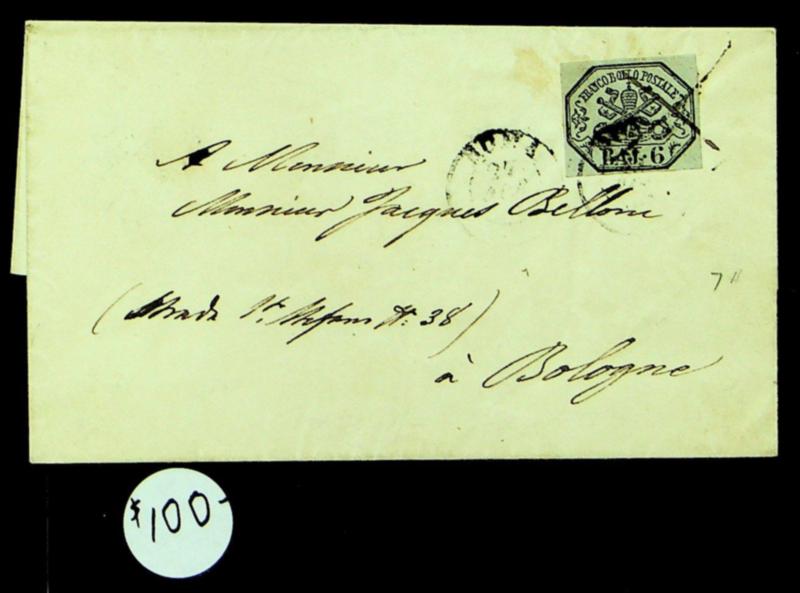 FRANCO BOLLO POSTALE
BAJ. 6
ROMA
A Monsieur
Monsieur Jacques Belloni
(Strada St. Stefano No. 38)
à Bologne
7
$100-